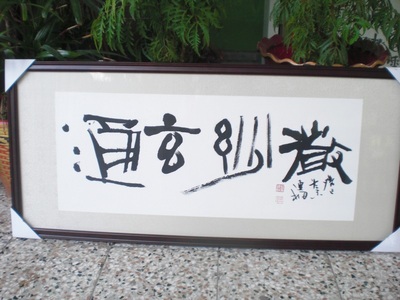 微妙玄通